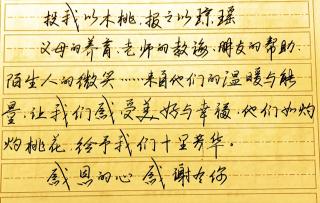 投我以木桃,报之以琼瑶
父母的养育,老师的教诲,朋友的帮助,
陌生人的微笑……来自他们的温暖与能
量,让我们感受美好与幸福,他们如灼
灼桃花,给予我们十里芳华。
感恩的心 感谢有你